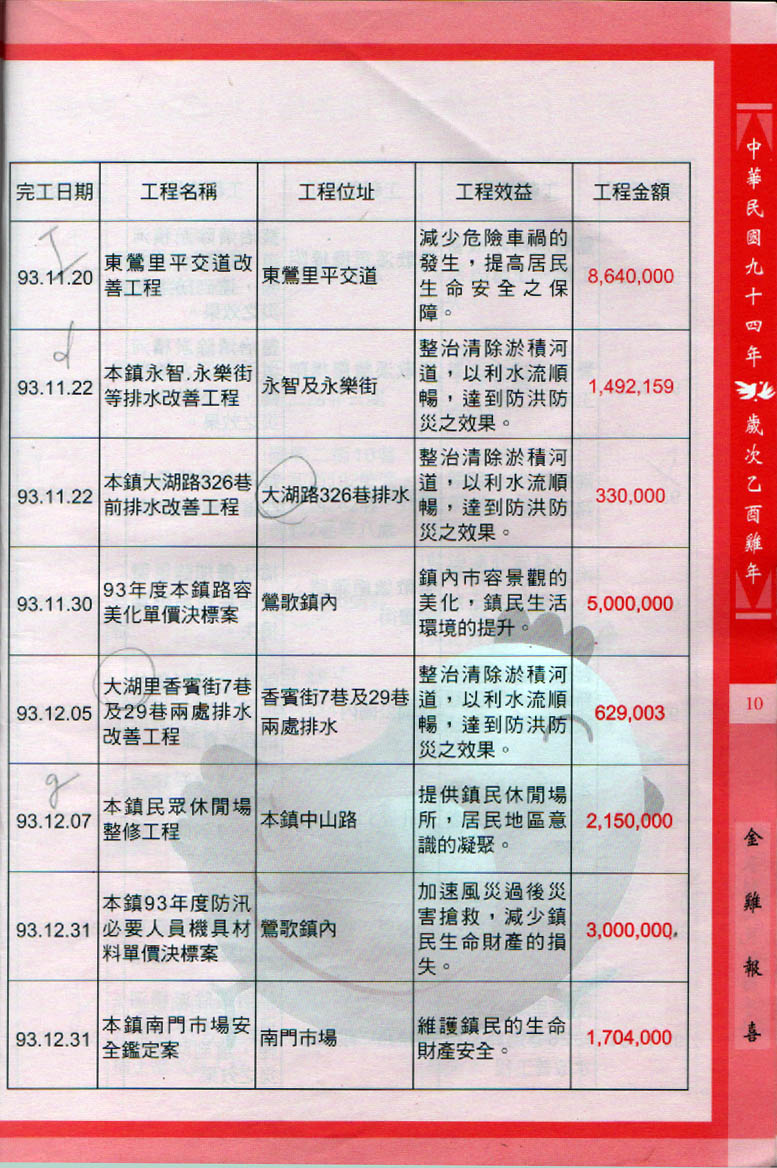 完工日期 工程名稱 工程位址 工程效益 工程金額
93.11.20
東鶯里平交道改
善工程
東鶯里平交道
減少危險車禍的
發生，提高居民
生命安全之保
障。
8,640,000
93.11.22
本鎮永智.永樂街
等排水改善工程
永智及永樂街
整治清除淤積河
道，以利水流順
暢，達到防洪防
災之效果。
1,492,159
93.11.22
本鎮大湖路326巷
前排水改善工程
大湖路326巷排水
整治清除淤積河
道，以利水流順
暢，達到防洪防
災之效果。
330,000
93.11.30
93年度本鎮路容
美化單價決標案
鶯歌鎮內
鎮內市容景觀的
美化，鎮民生活
環境的提升。
5,000,000
93.12.05
大湖里香賓街7巷
及29巷兩處排水
改善工程
香賓街7巷及29巷
兩處排水
整治清除淤積河
道，以利水流順
暢，達到防洪防
災之效果。
629,003
g
93.12.07
本鎮民眾休閒場
整修工程
本鎮中山路
提供鎮民休閒場
所，居民地區意
識的凝聚。
2,150,000
93.12.31
本鎮93年度防汛
必要人員機具材
料單價決標案
鶯歌鎮內
加速風災過後災
害搶救，減少鎮
民生命財產的損
失。
3,000,000
93.12.31
本鎮南門市場安
全鑑定案
南門市場
維護鎮民的生命
財產安全。
1,704,000
中華民國九十四年
歲次乙酉雞年
10
金雞報喜